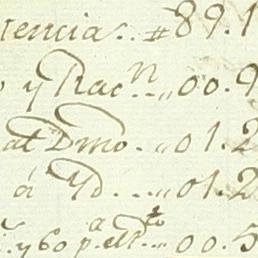 tencia..#89.1
y Rac.n..,,00.9
at Dmo..,,01.2
á Yd...,,01.2
y 60 p.a el t.to..,,00.5